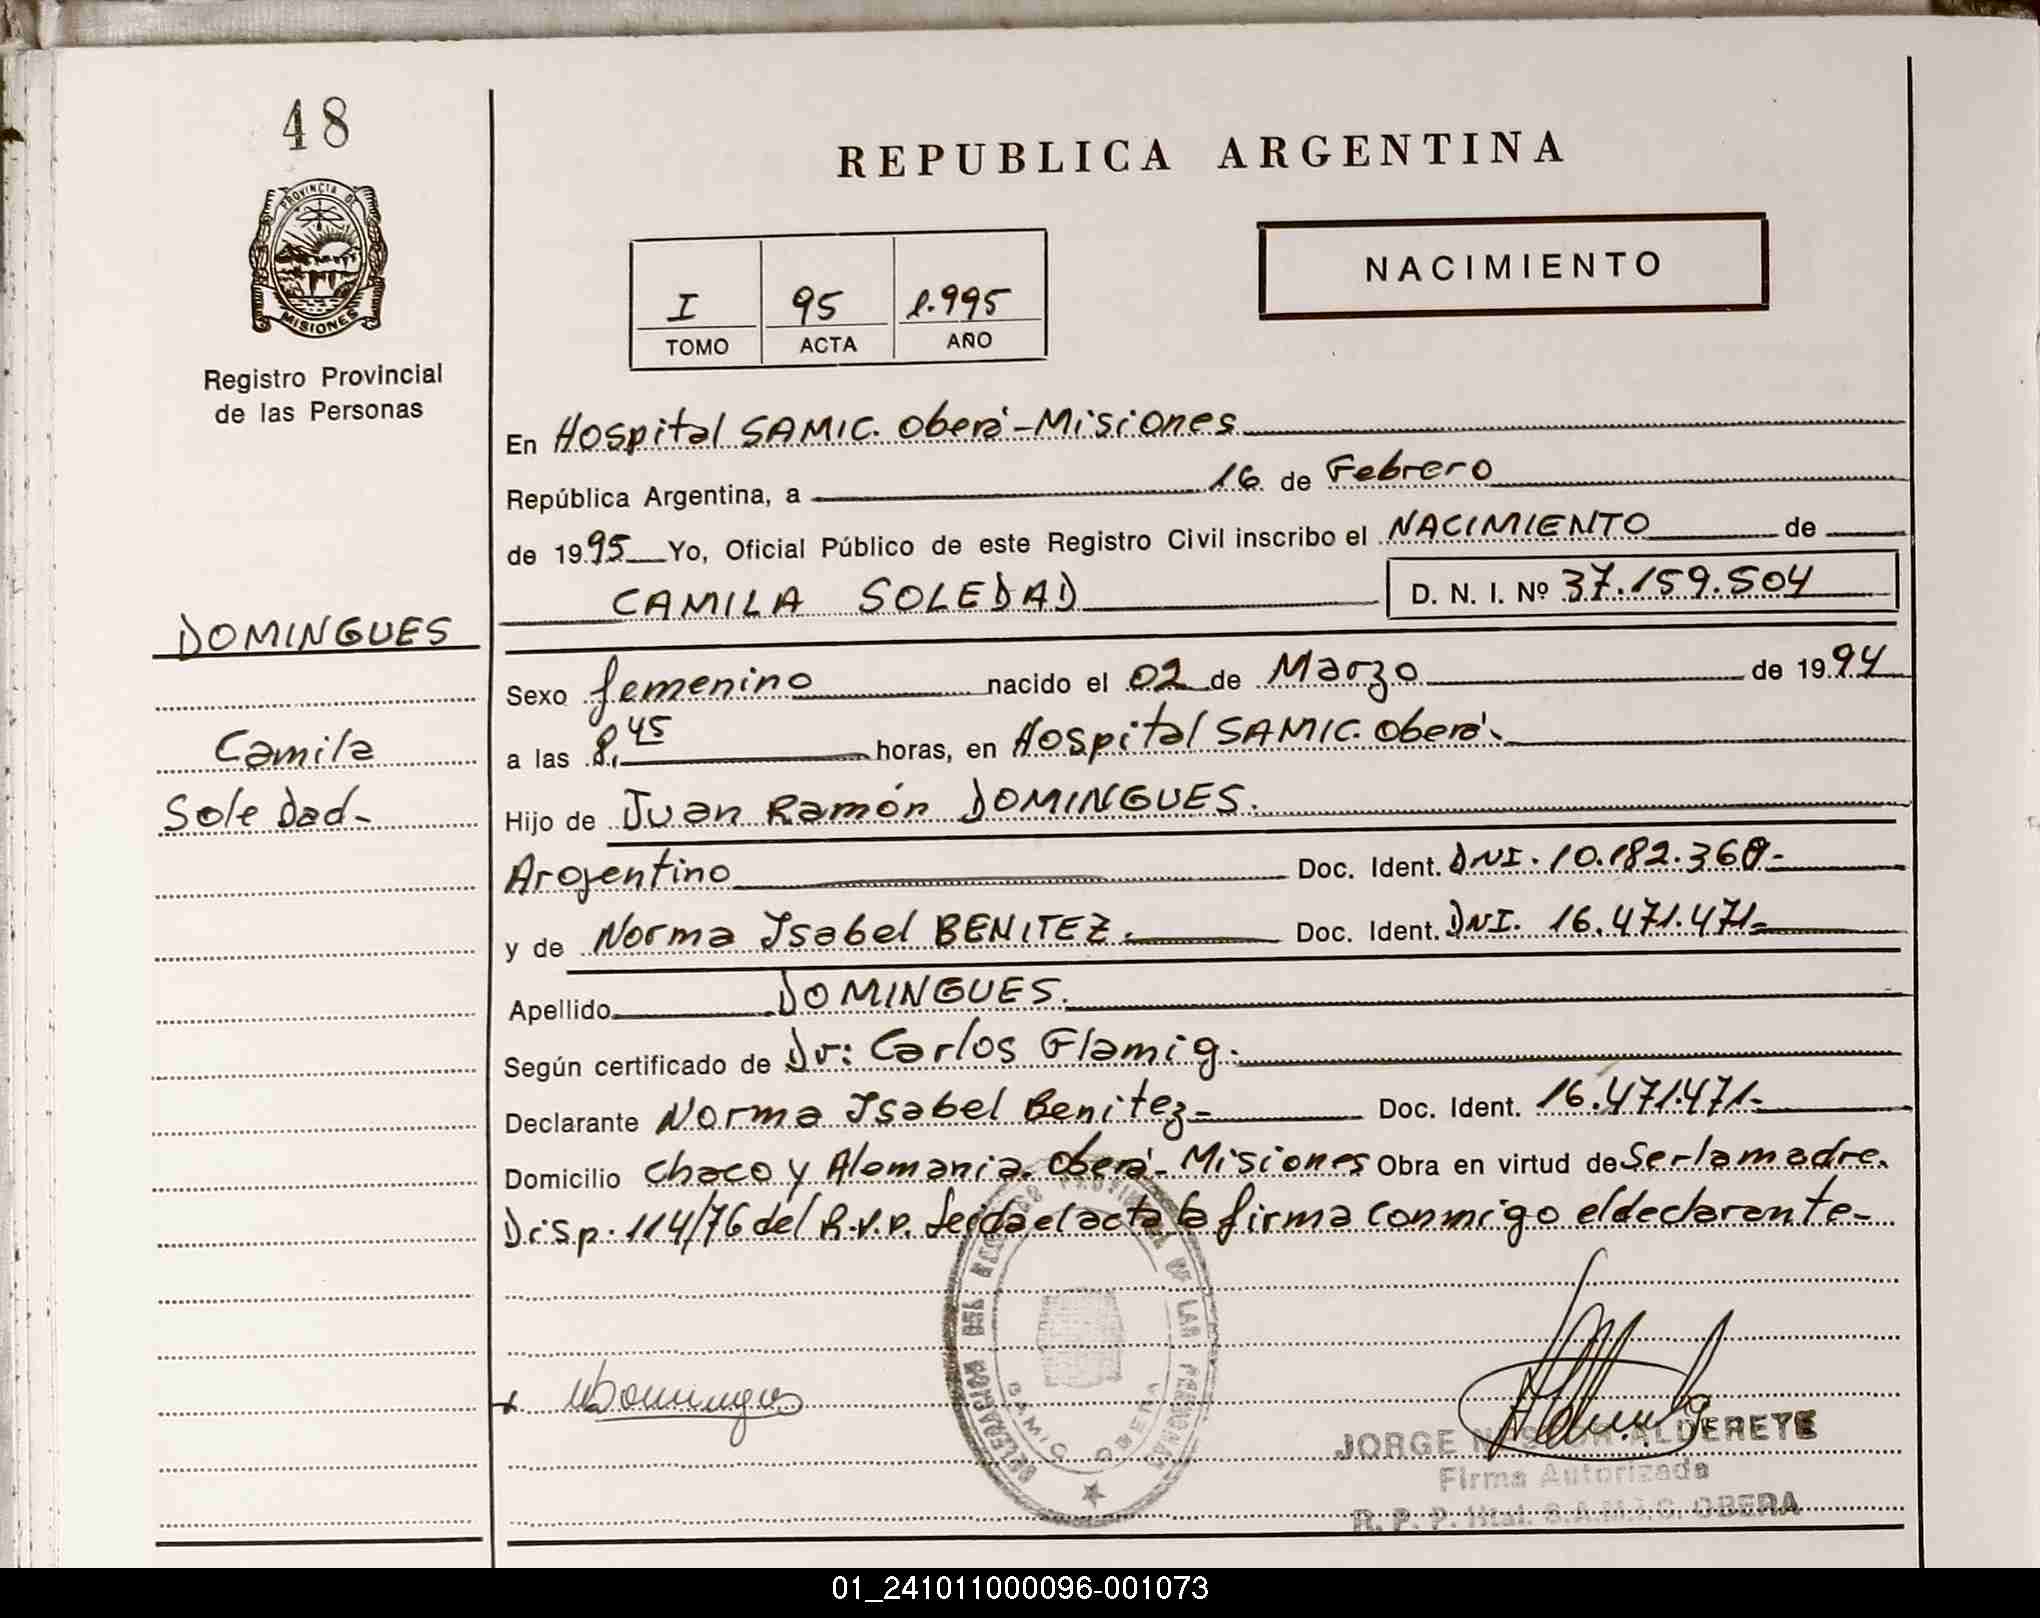 48
PROVINCIA DE
MISIONES
Registro Provincial
de las Personas
DOMINGUES
Camila
Soledad-
REPUBLICA ARGENTINA
NACIMIENTO
I 95 1.995
TOMO ACTA AÑO
En Hospital SAMIC. Oberá-Misiones
República Argentina, a 16 de Febrero
de 1995 Yo, Oficial Público de este Registro Civil inscribo el NACIMIENTO de
CAMILA SOLEDAD D. N. I. Nº 37.159.504
Sexo femenino nacido el 02 de Marzo de 1994
a las 8,45 horas, en Hospital SAMIC. Oberá.
Hijo de Juan Ramón DOMINGUES.
Argentino Doc. Ident. DNI. 10.182.360-
y de Norma Isabel BENITEZ. Doc. Ident. DNI. 16.471.471-
Apellido DOMINGUES.
Según certificado de Dr: Carlos Flamig.
Declarante Norma Isabel Benitez- Doc. Ident. 16.471.471-
Domicilio Chaco y Alemania. Oberá- Misiones Obra en virtud de Ser la madre.
Disp. 114/76 del R.P.P. Leida el acta la firma conmigo el declarante-
DEL REGISTRO PROVINCIAL DE LAS PERSONAS
SAMIC OBERA
Domingues
JORGE NESTOR ALDERETE
Firma Autorizada
R. P. P. Htal. S.A.M.I.C. OBERA
01_241011000096-001073